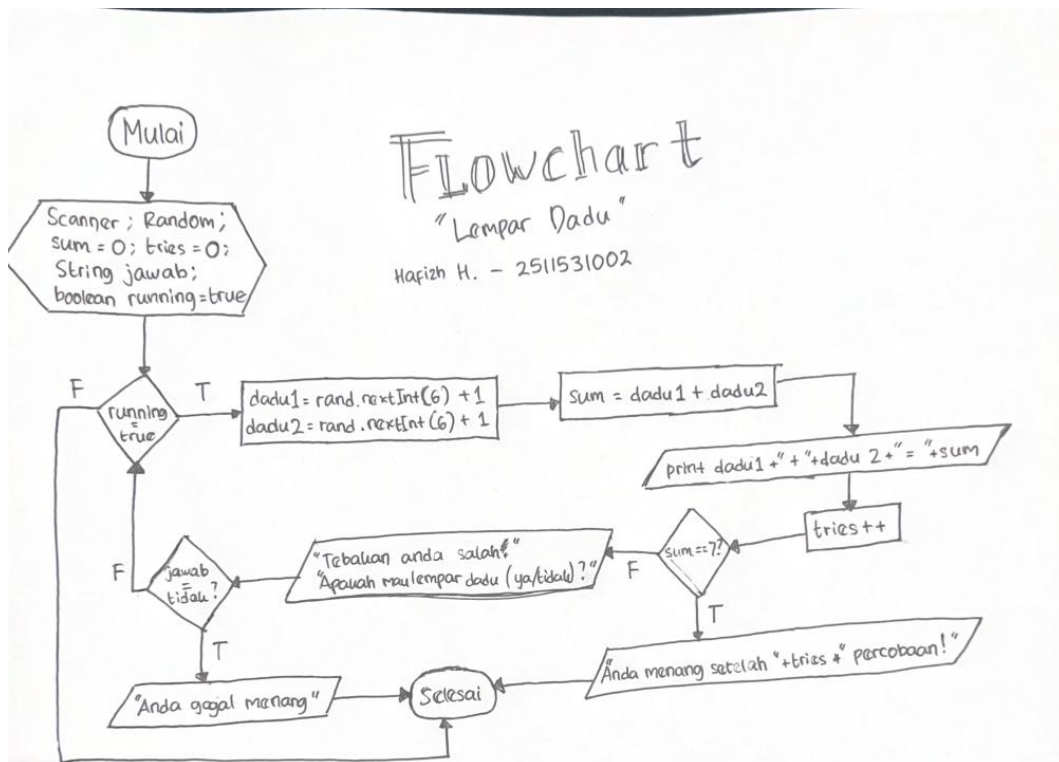 Mulai
Flowchart
"Lempar Dadu"
Hafizh H. - 2511531002
Scanner ; Random;
sum = 0; tries = 0;
String jawab;
boolean running=true
F
running
=
true
T
dadu1 = rand.nextInt(6) + 1
dadu2 = rand.nextInt(6) + 1
sum = dadu1 + dadu2
print dadu1 +" + "+dadu 2 +" = "+sum
tries++
sum==7?
F
T
"Tebakan anda salah!"
"Apakah mau lempar dadu (ya/tidak)?"
jawab
=
tidak?
F
T
"Anda menang setelah "+tries +" percobaan!"
"Anda gagal menang"
Selesai